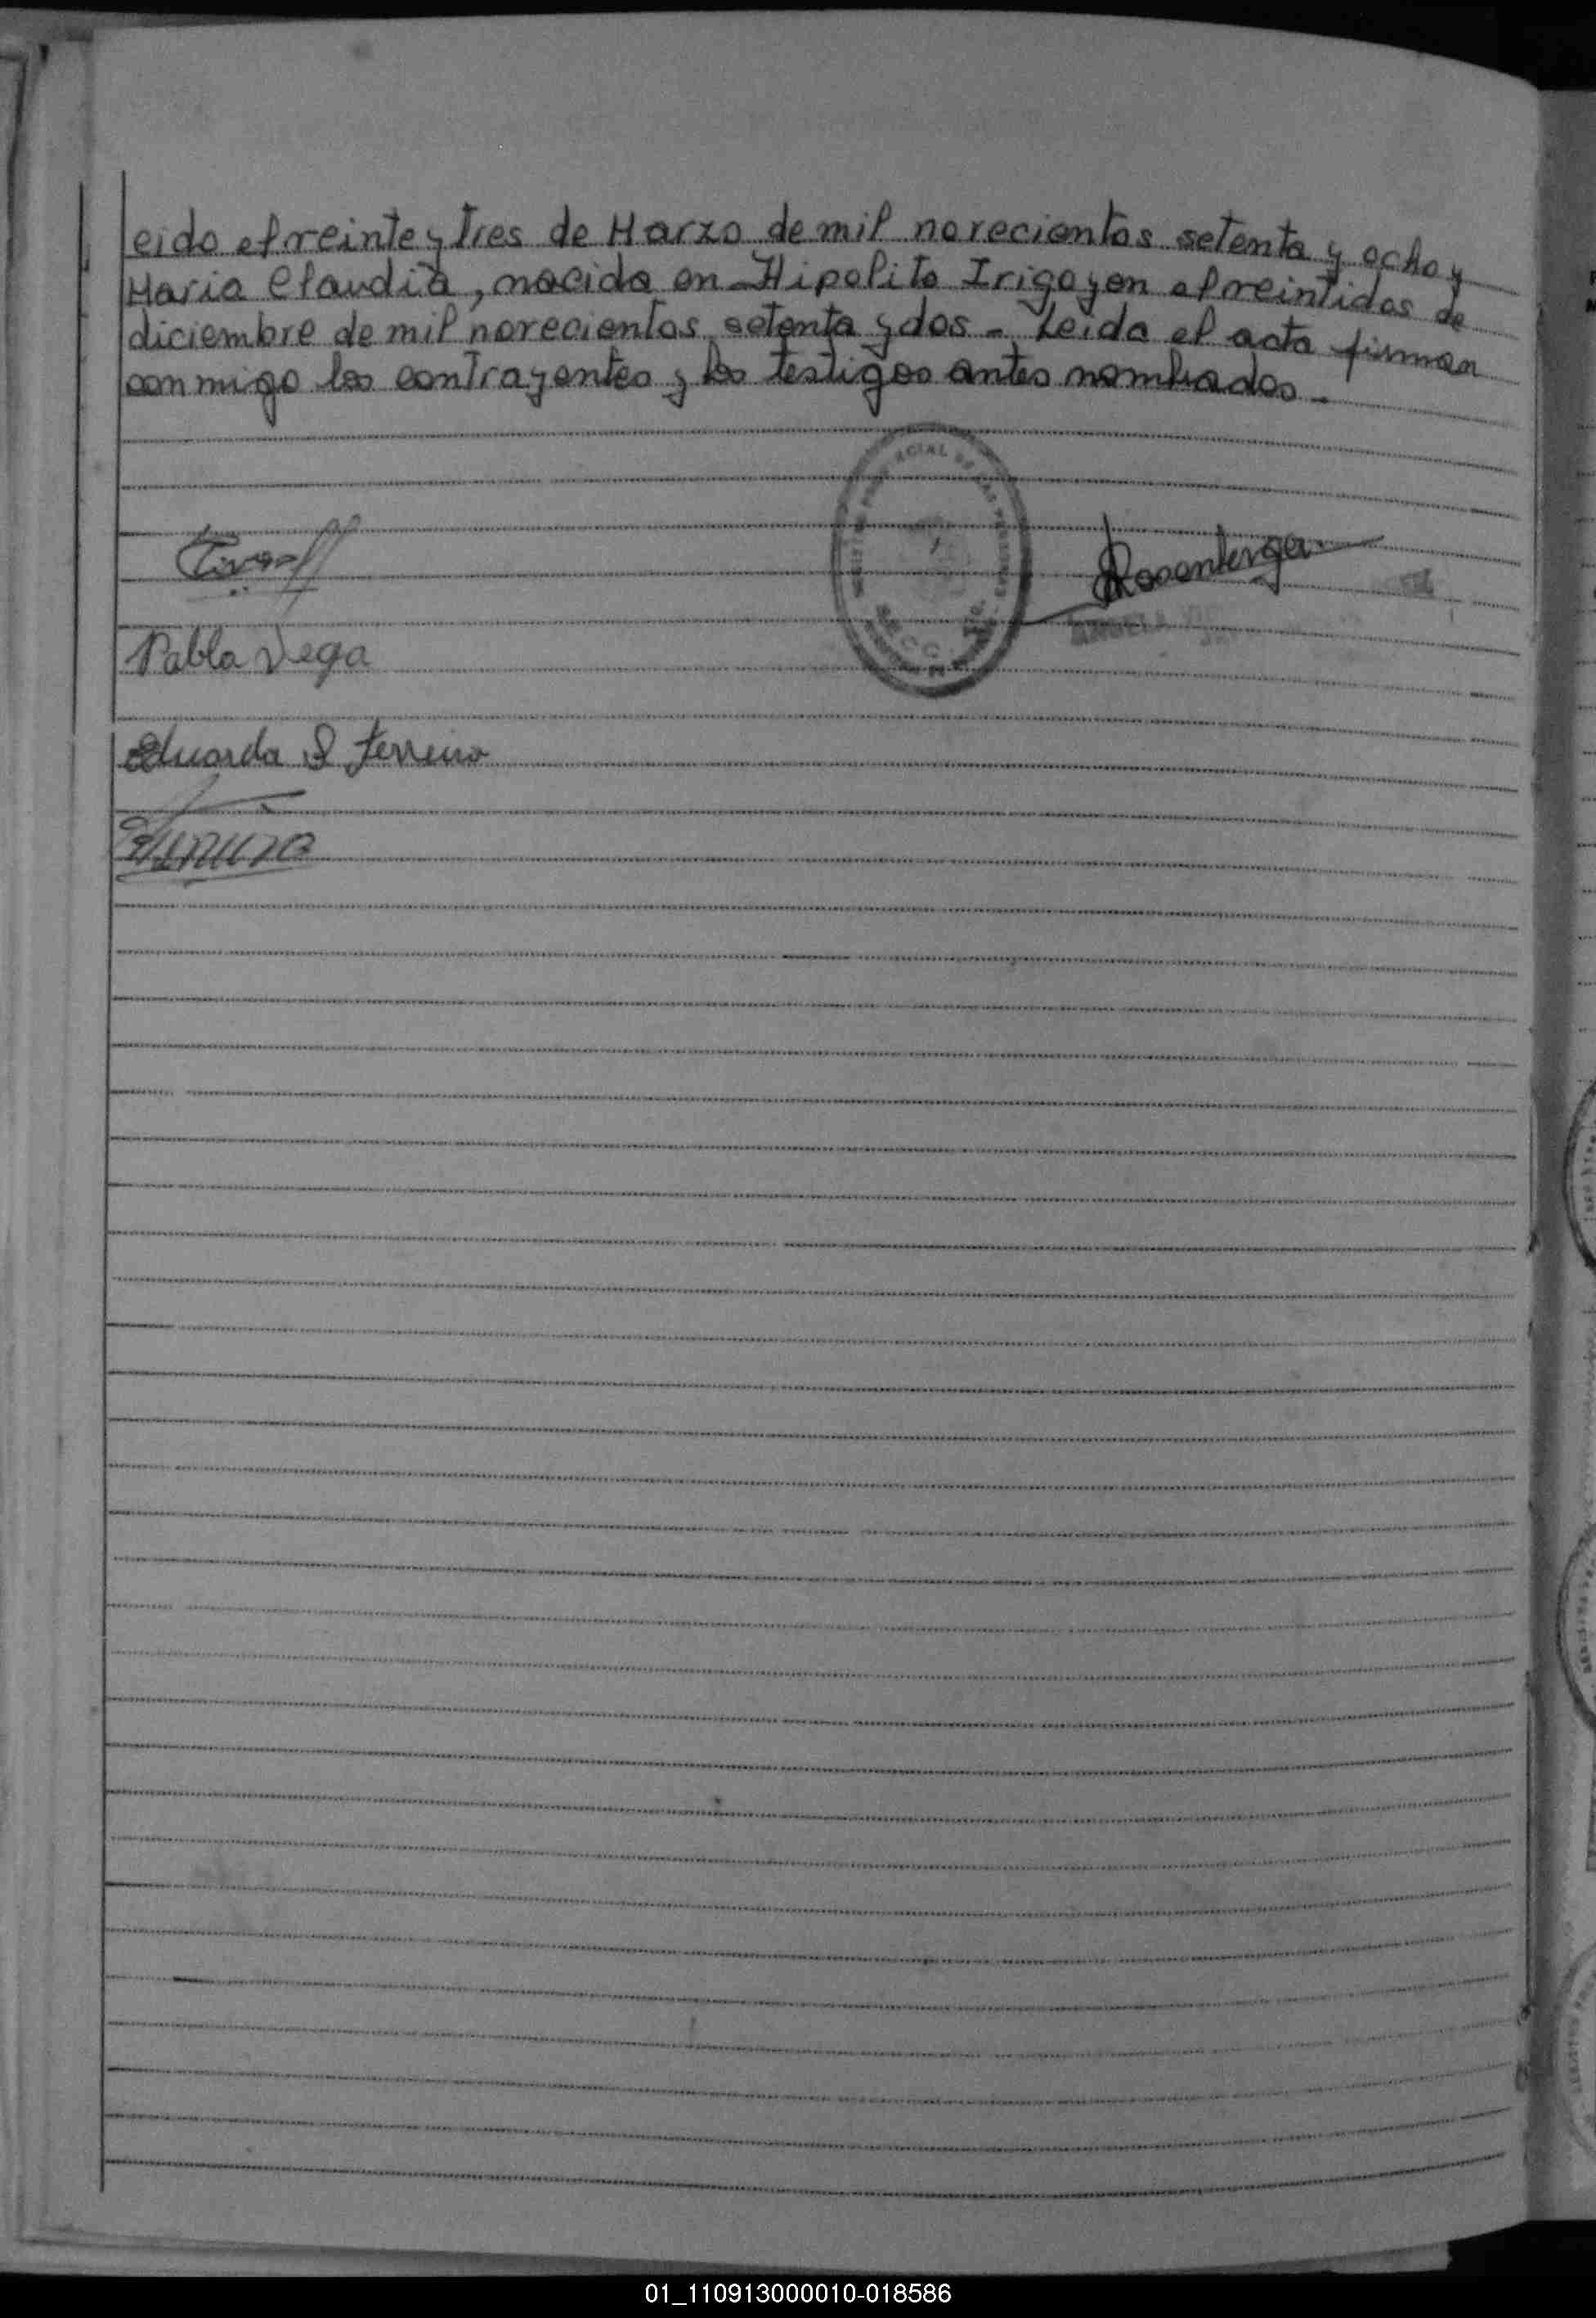 leido el veinte y tres de Marzo de mil novecientos setenta y ocho y
Maria Claudia, nacida en Hipolito Irigoyen el veintidos de
diciembre de mil novecientos setenta y dos - Leida el acta firman
conmigo los contrayentes y los testigos antes nombrados.-
Rosenterger
Pabla Vega
Eduarda S Ferreira
01_110913000010-018586